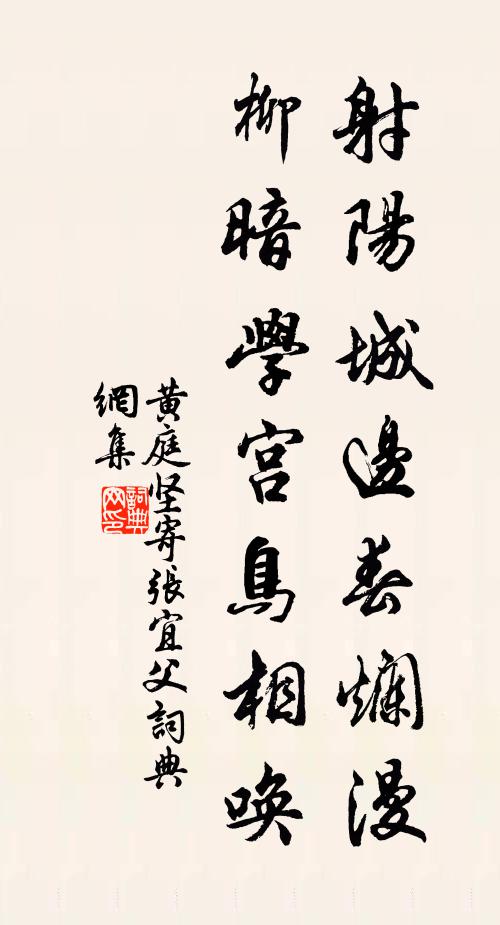 射陽城邊春爛漫
柳暗學宮鳥相喚
黃庭坚寄張宜父詞典
網集
詞典
网印